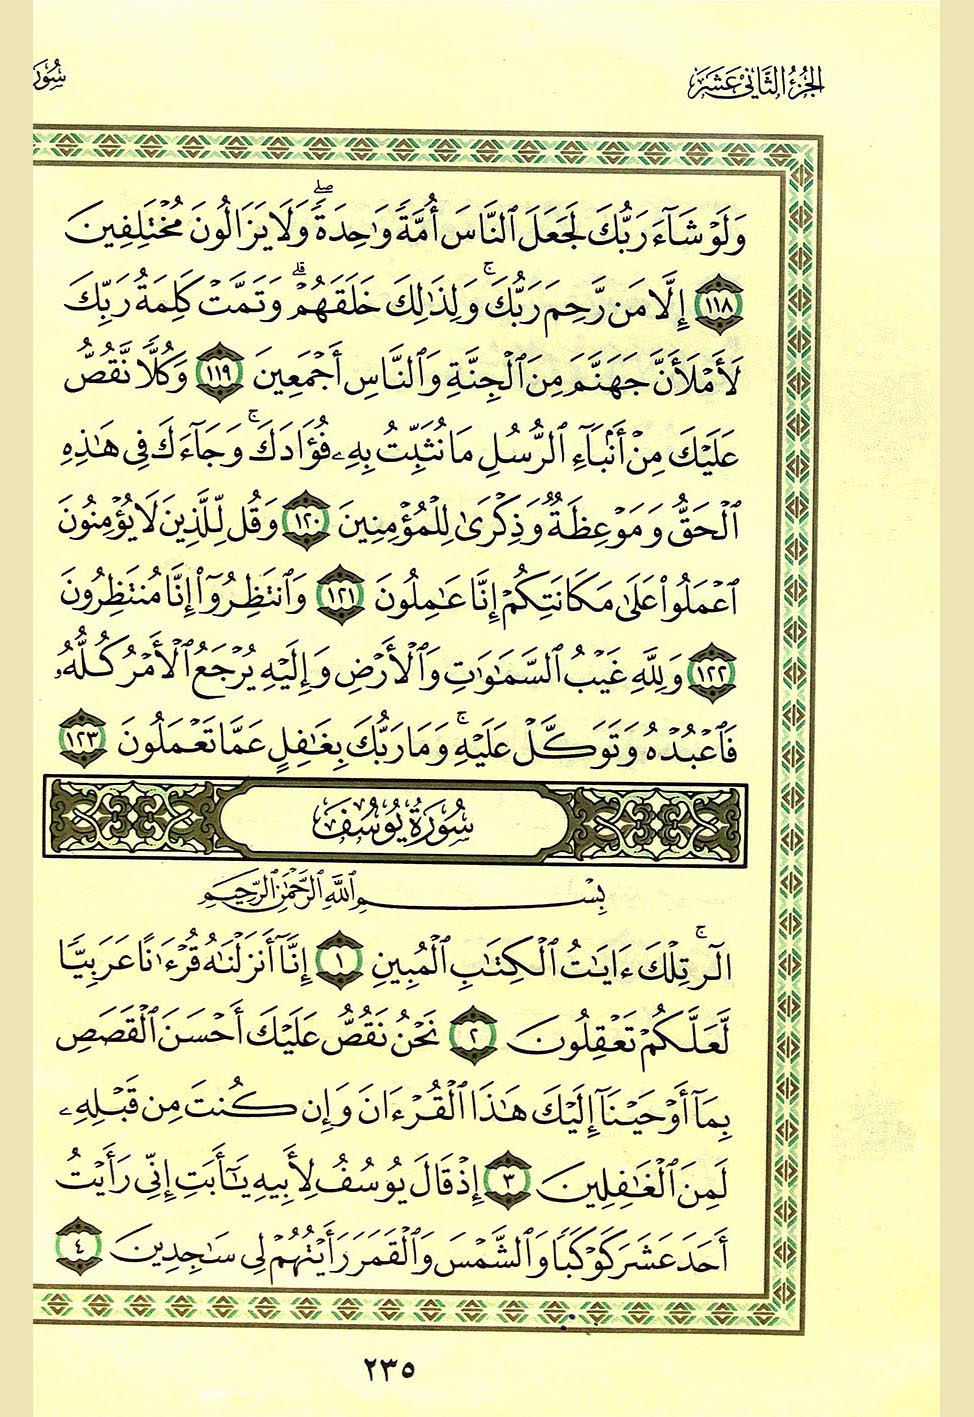 الجُزْءُ الثَّانِي عَشَرَ
وَلَوْ شَآءَ رَبُّكَ لَجَعَلَ ٱلنَّاسَ أُمَّةً وَٰحِدَةً ۖ وَلَا يَزَالُونَ مُخْتَلِفِينَ
١١٨ إِلَّا مَن رَّحِمَ رَبُّكَ ۚ وَلِذَٰلِكَ خَلَقَهُمْ ۗ وَتَمَّتْ كَلِمَةُ رَبِّكَ
لَأَمْلَأَنَّ جَهَنَّمَ مِنَ ٱلْجِنَّةِ وَٱلنَّاسِ أَجْمَعِينَ ١١٩ وَكُلًّا نَّقُصُّ
عَلَيْكَ مِنْ أَنۢبَآءِ ٱلرُّسُلِ مَا نُثَبِّتُ بِهِۦ فُؤَادَكَ ۚ وَجَآءَكَ فِى هَٰذِهِ
ٱلْحَقُّ وَمَوْعِظَةٌ وَذِكْرَىٰ لِلْمُؤْمِنِينَ ١٢٠ وَقُل لِّلَّذِينَ لَا يُؤْمِنُونَ
ٱعْمَلُوا۟ عَلَىٰ مَكَانَتِكُمْ إِنَّا عَٰمِلُونَ ١٢١ وَٱنتَظِرُوٓا۟ إِنَّا مُنتَظِرُونَ
١٢٢ وَلِلَّهِ غَيْبُ ٱلسَّمَٰوَٰتِ وَٱلْأَرْضِ وَإِلَيْهِ يُرْجَعُ ٱلْأَمْرُ كُلُّهُۥ
فَٱعْبُدْهُ وَتَوَكَّلْ عَلَيْهِ ۚ وَمَا رَبُّكَ بِغَٰفِلٍ عَمَّا تَعْمَلُونَ ١٢٣
سُورَةُ يُوسُفَ
بِسْمِ ٱللَّهِ ٱلرَّحْمَٰنِ ٱلرَّحِيمِ
الٓر ۚ تِلْكَ ءَايَٰتُ ٱلْكِتَٰبِ ٱلْمُبِينِ ١ إِنَّآ أَنزَلْنَٰهُ قُرْءَٰنًا عَرَبِيًّا
لَّعَلَّكُمْ تَعْقِلُونَ ٢ نَحْنُ نَقُصُّ عَلَيْكَ أَحْسَنَ ٱلْقَصَصِ
بِمَآ أَوْحَيْنَآ إِلَيْكَ هَٰذَا ٱلْقُرْءَانَ وَإِن كُنتَ مِن قَبْلِهِۦ
لَمِنَ ٱلْغَٰفِلِينَ ٣ إِذْ قَالَ يُوسُفُ لِأَبِيهِ يَٰٓأَبَتِ إِنِّى رَأَيْتُ
أَحَدَ عَشَرَ كَوْكَبًا وَٱلشَّمْسَ وَٱلْقَمَرَ رَأَيْتُهُمْ لِى سَٰجِدِينَ ٤
٢٣٥